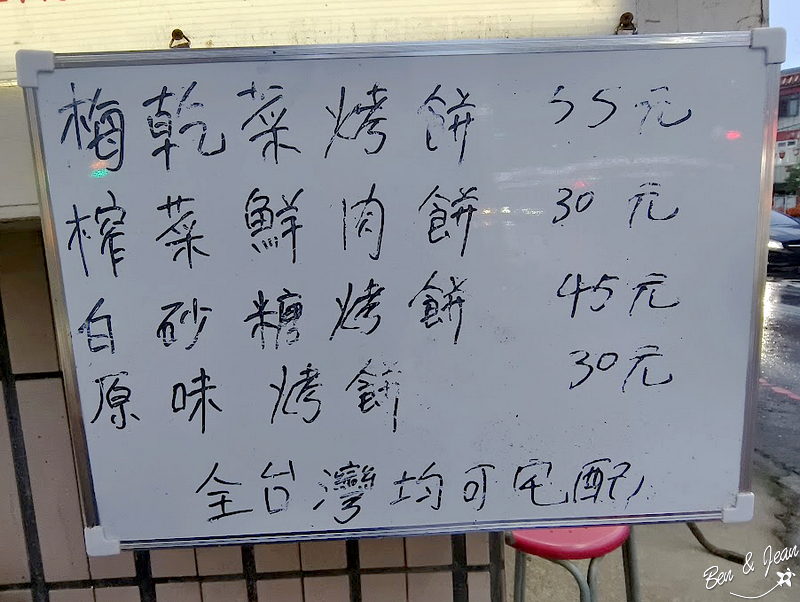 梅乾菜烤餅 55元
榨菜鮮肉餅 30元
白砂糖烤餅 45元
原味烤餅 30元
全台灣均可宅配
Ben & Jean